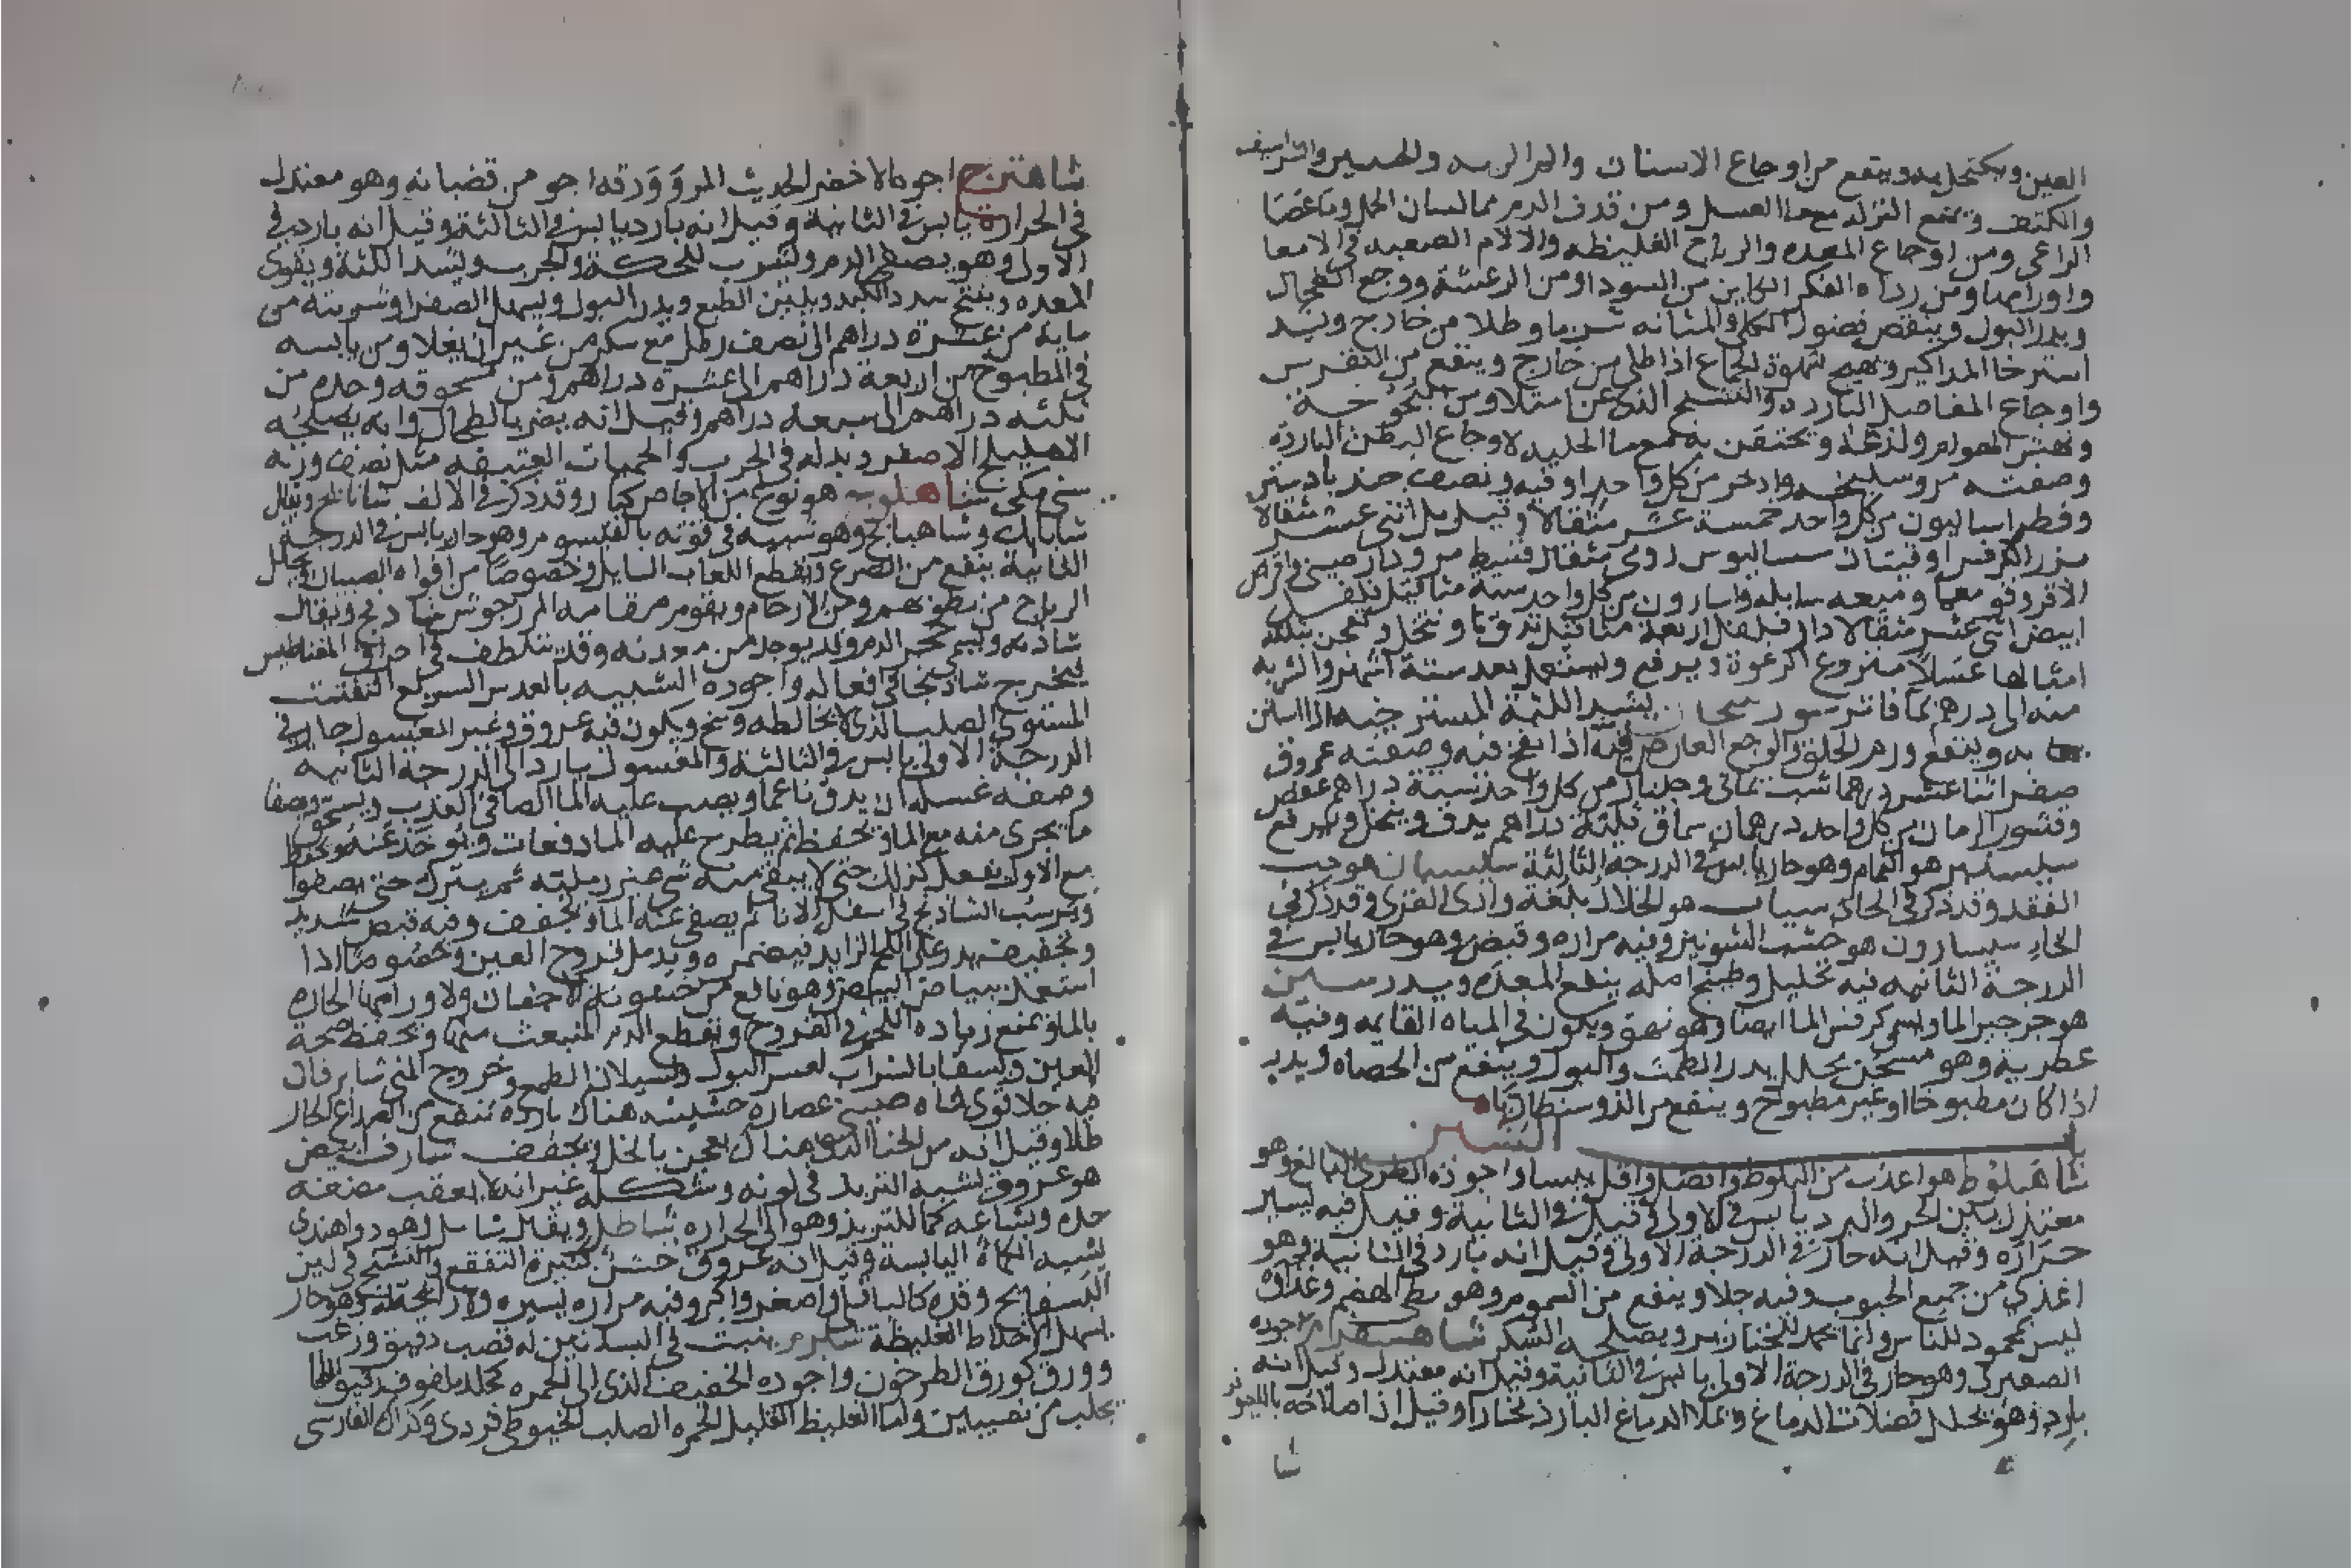 العين ويكتحل به وينفع من اوجاع الاسنان والبرا لربه والجنبين والشراسيف
والكتف ويمنع النزله مع ما العسل ومن قذف الدم مما لسان الحمل وماعصا
الراعى ومن اوجاع المعده والرياح الغليظه والالام الصعبه فى الامعا
واورامها ومن رداه الفكر الكاين من السودا ومن الرعشة ووجع الطحال
ويدر البول وينقص فضول الكلى والمثانه شربا وطلا من خارج ويشد
استرخا المذاكير ويهيج شهوة الجماع اذا طلى من خارج وينفع من النقرس
واوجاع المفاصل البارده والتشنج الذى عن امتلا ومن البحوحة
ونهش الهوام ولذعها ويحتقن به مع ما الحلبه لاوجاع البطن البارده
وصفته مر وسليخه واذخر من كل واحد اوقيه ونصف جندبادستر
وفطراساليون من كل واحد خمسة عشر مثقالا وقيل بل اثنى عشر مثقالا
بزر الكرفس اوقيتان سساليوس رومى مثقال قسط مر ودار صينى واقراص
الاقروقو معما وميعه سايله واسارون من كل واحد ستة مثاقيل فلفل
ابيض اثنى عشر مثقالا دار فلفل اربعة مثاقيل تدق وتنخل وتعجن بثلثه
امثالها عسلا منزوع الرغوة ويرفع ويستعمل بعد ستة اشهر والشربه
منه الى درهم بما فاتر سورنجان يشد اللثة المسترخيه اذا استن
به وينفع ورم الحلق والوجع العارض فيه اذا نفخ فيه وصفته عروق
صفر اثنا عشر درهما شب يمانى وجلنار من كل واحد ستة دراهم عفص
وقشور الرمان من كل واحد درهمان سماق ثلثة دراهم يدق وينخل ويرفع
سيسنبر هو النمام وهو حار يابس فى الدرجة الثالثة سيسبان هو حب
الفقد وقد ذكر فى الحا سيبات هو الخلال بلغة وادى القرى وقد ذكر فى
الخا سيسارون هو خشب الشونيز وفيه مراره وقبض وهو حار يابس فى
الدرجة الثانيه فيه تحليل وطبيخ اصله ينفع المعده ويدر سيين
هو جرجير الما ويسمى كرفس الما ايضا وهو نهق ويكون فى المياه القايمه وفيه
عطرية وهو مسخن محلل يدر الطمث والبول وينفع من الحصاه ويدر
اذا كان مطبوخا او غير مطبوخ وينفع من الذوسنطاريا
باب الشين
شاهبلوط هو اعذب من البلوط وافضل واقل يبسا واجوده الطرى البالغ وهو
معتدل بين الحر والبرد يابس فى الاولى وقيل فى الثانية وقيل فيه يسير
حراره وقيل انه حار فى الدرجة الاولى وقيل انه بارد فى الثانية وهو
اغذى من جميع الحبوب وفيه جلا وينفع من السموم وهو بطى الهضم وغذاوه
ليس بمحمود للناس وانما يحمد للخنازير ويصلحه السكر شاهسفرم اجوده
الصعترى وهو حار فى الدرجة الاولى يابس فى الثانية وقيل انه معتدل وقيل انه
بارد وهو يحلل فضلات الدماغ ويملا الدماغ البارد بخارا وقيل اذا صلاحه بالنيلوفر
شا
شاهترج اجوده الاخضر الحديث المر وورقه اجود من قضبانه وهو معتدل
فى الحرارة يابس فى الثانية وقيل انه بارد يابس فى الثالثة وقيل انه بارد فى
الاولى وهو يصفى الدم ولشرب للحكة والجرب ويشد اللثة ويقوى
المعده ويفتح سدد الكبد ويلين الطبع ويدر البول ويسهل الصفرا وشربته من
مايه من عشرة دراهم الى نصف رطل مع سكر من غير ان يغلا ومن يابسه
فى المطبوخ من اربعة دراهم الى عشرة دراهم ومن مسحوقه وحده من
ثلثه دراهم الى سبعه دراهم وقيل انه يضر بالطحال وانه يصلحه
الاهليلج الاصفر وبدله فى الجرب والحميات العتيقه مثل نصف وزنه
سنى مكى شاهلوج هو نوع من الاجاص كبار وقد ذكر فى الالف شانانج ويقال
شابابك وشاهبانج وهو شبيه فى قوته بالقيسوم وهو حار يابس فى الدرجة
الثانية ينفع من الصرع ويقطع اللعاب السايل وخصوصا من افواه الصبيان ويحلل
الرياح من بطونهم ومن الارحام ويقوم مقامه المرزجوش شاذنج ويقال
شاذنه ويسمى حجر الدم وقد يوجد من معدنه وقد يتلطف فى احراق المغناطيس
فيخرج شاذنجا فى افعاله واجوده الشبيه بالعدس السريع التفتت
المستوى الصلب الذى لا يخالطه وسخ ويكون فيه عروق وغير المغسول حار فى
الدرجة الاولى يابس فى الثالثة والمغسول بارد الى الدرجة الثانيه
وصفه غسله ان يدق ناعما ويصب عليه الما الصافى العذب ويسحق ويصفا
ما يجرى منه مع الما ويحفظ ثم يطرح عليه الما دفعات ويوخذ عنه ويحفظ
مع الاول يفعل كذلك حتى لا يبقى منه شى غير رمليته ثم يترك حتى يصفوا
ويرسب الشاذنج فى اسفل الانا ثم يصفى عنه الما ويجفف وفيه قبض شديد
وتجفيف يدر على اللحم الزايد فيضمره ويدمل قروح العين وخصوصا اذا
استعمل ببياض البيض وهو نافع من خشونة الاجفان ولاورامها الحاره
بالما ويمنع زياده اللحم فى القروح ويقطع الدم المنبعث منها ويحفظ صحة
العين ويسقا بالشراب لعسر البول ولسيلان الطمث وخروج المنى شابرقان
فيه جلا قوى شاه صينى عصاره حشيشه هناك بارده تنفع من الصداع الحار
طلا وقيل انه من الحنا الذى هناك يعجن بالخل ويجفف شارف ابيض
هو عروق تشبه التربد فى لونه وشكله غير انه لا يعقب مضغه
حده وبشاعه كما للتربد وهو الى الحراره شاطل ويقال شاسل وهو دوا هندى
يشبه الكماة اليابسة وقيل انه عروق خشن كثيرة التفقع والتشنج فى لين
البسفايج وقده كالباقلا واصغر واكبر وفيه مراره يسيره ولا رايحة له وهو حار
يسهل الاخلاط الغليظة شبرم ينبت فى البساتين له قصب دقيق وزغب
وورق كورق الطرخون واجوده الخفيف الذى الى الحمره كجلد ملفوف رقيق اللحا
يجلب من نصيبين واما الغليظ القليل الحمره الصلب الخيوطى فردى وكذلك الفارسى